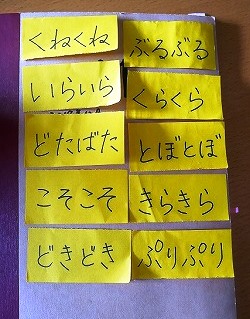 くねくね
ぶるぶる
いらいら
くらくら
どたばた
とぼとぼ
こそこそ
きらきら
どきどき
ぷりぷり